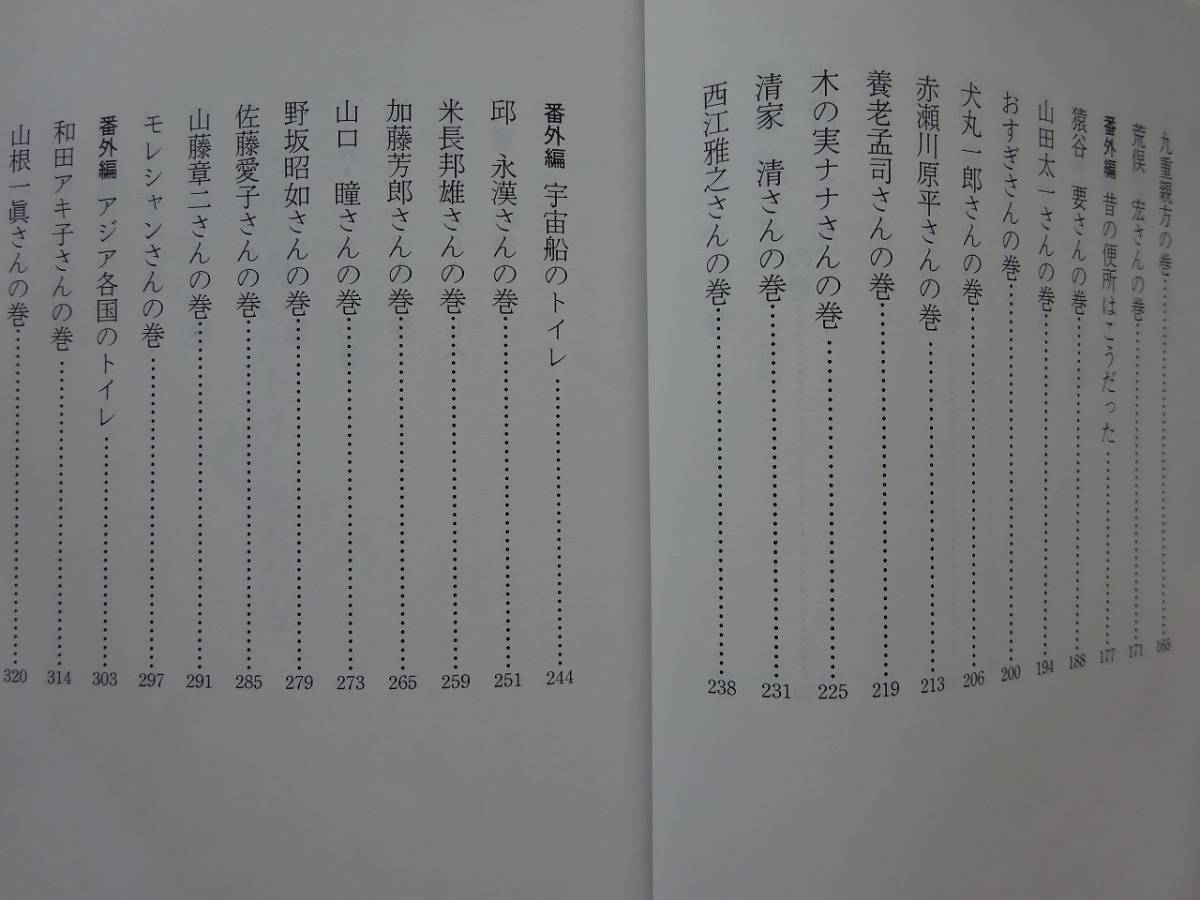 九重親方の巻……………………………165
荒俣　宏さんの巻……………………………171
番外編　昔の便所はこうだった……………………………177
猿谷　要さんの巻……………………………188
山田太一さんの巻……………………………194
おすぎさんの巻……………………………200
犬丸一郎さんの巻……………………………206
赤瀬川原平さんの巻……………………………213
養老孟司さんの巻……………………………219
木の実ナナさんの巻……………………………225
清家　清さんの巻……………………………231
西江雅之さんの巻……………………………238
番外編　宇宙船のトイレ……………………………244
邱　永漢さんの巻……………………………251
米長邦雄さんの巻……………………………259
加藤芳郎さんの巻……………………………265
山口　瞳さんの巻……………………………273
野坂昭如さんの巻……………………………279
佐藤愛子さんの巻……………………………285
山藤章二さんの巻……………………………291
モレシャンさんの巻……………………………297
番外編　アジア各国のトイレ……………………………303
和田アキ子さんの巻……………………………314
山根一眞さんの巻……………………………320